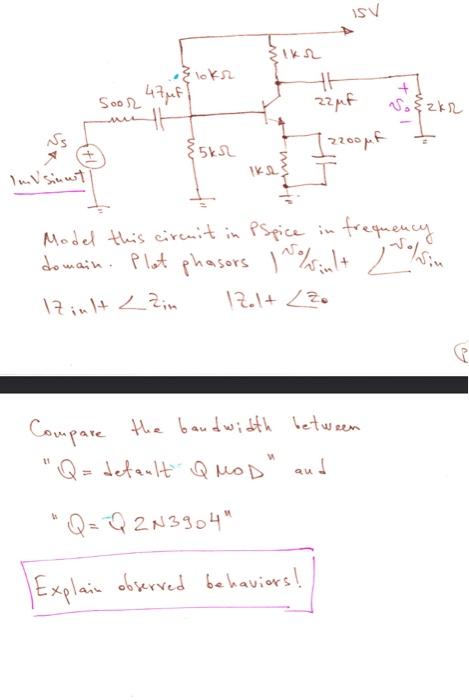 15V
1KΩ
10KΩ
47μF
500Ω
22μF
+
Vo
-
2KΩ
Vs
2200μF
5KΩ
1KΩ
1mVsinωt
Model this circuit in PSpice in frequency
domain. Plot phasors |Vo/Vin| + ∠Vo/Vin
|Zin| + ∠Zin |Zo| + ∠Zo
Compare the bandwidth between
"Q = default QMOD" and
"Q = Q2N3904"
Explain observed behaviors!